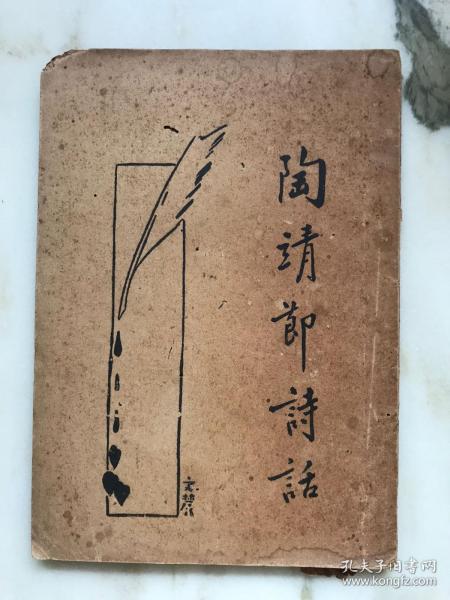 陶靖節詩話
孔夫子旧书网
www.kongfz.com